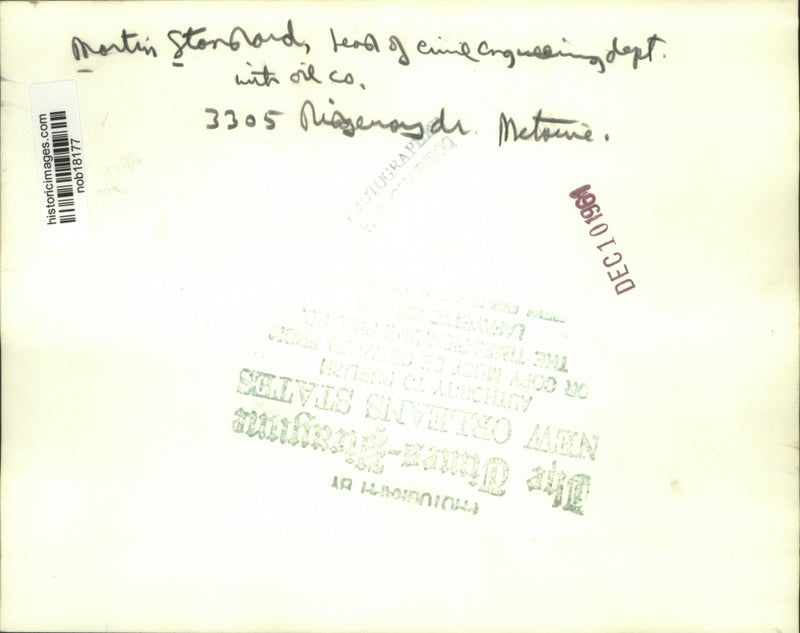 Martin Standard, head of civil engineering dept.
with oil co.
3305 Ridgeway dr. Metairie.
historicimages.com
nob18177
PHOTOGRAPHER
DEC 10 1961
PHOTOGRAPH BY
The Times-Picayune
NEW ORLEANS STATES
AUTHORITY TO PUBLISH
OR COPY MUST BE OBTAINED FROM
THE TIMES-PICAYUNE PUB. CO.
LAFAYETTE SQUARE